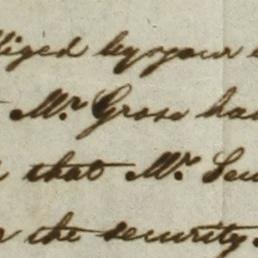 liged by your
Mr. Grose ha
that Mr. Se
the security